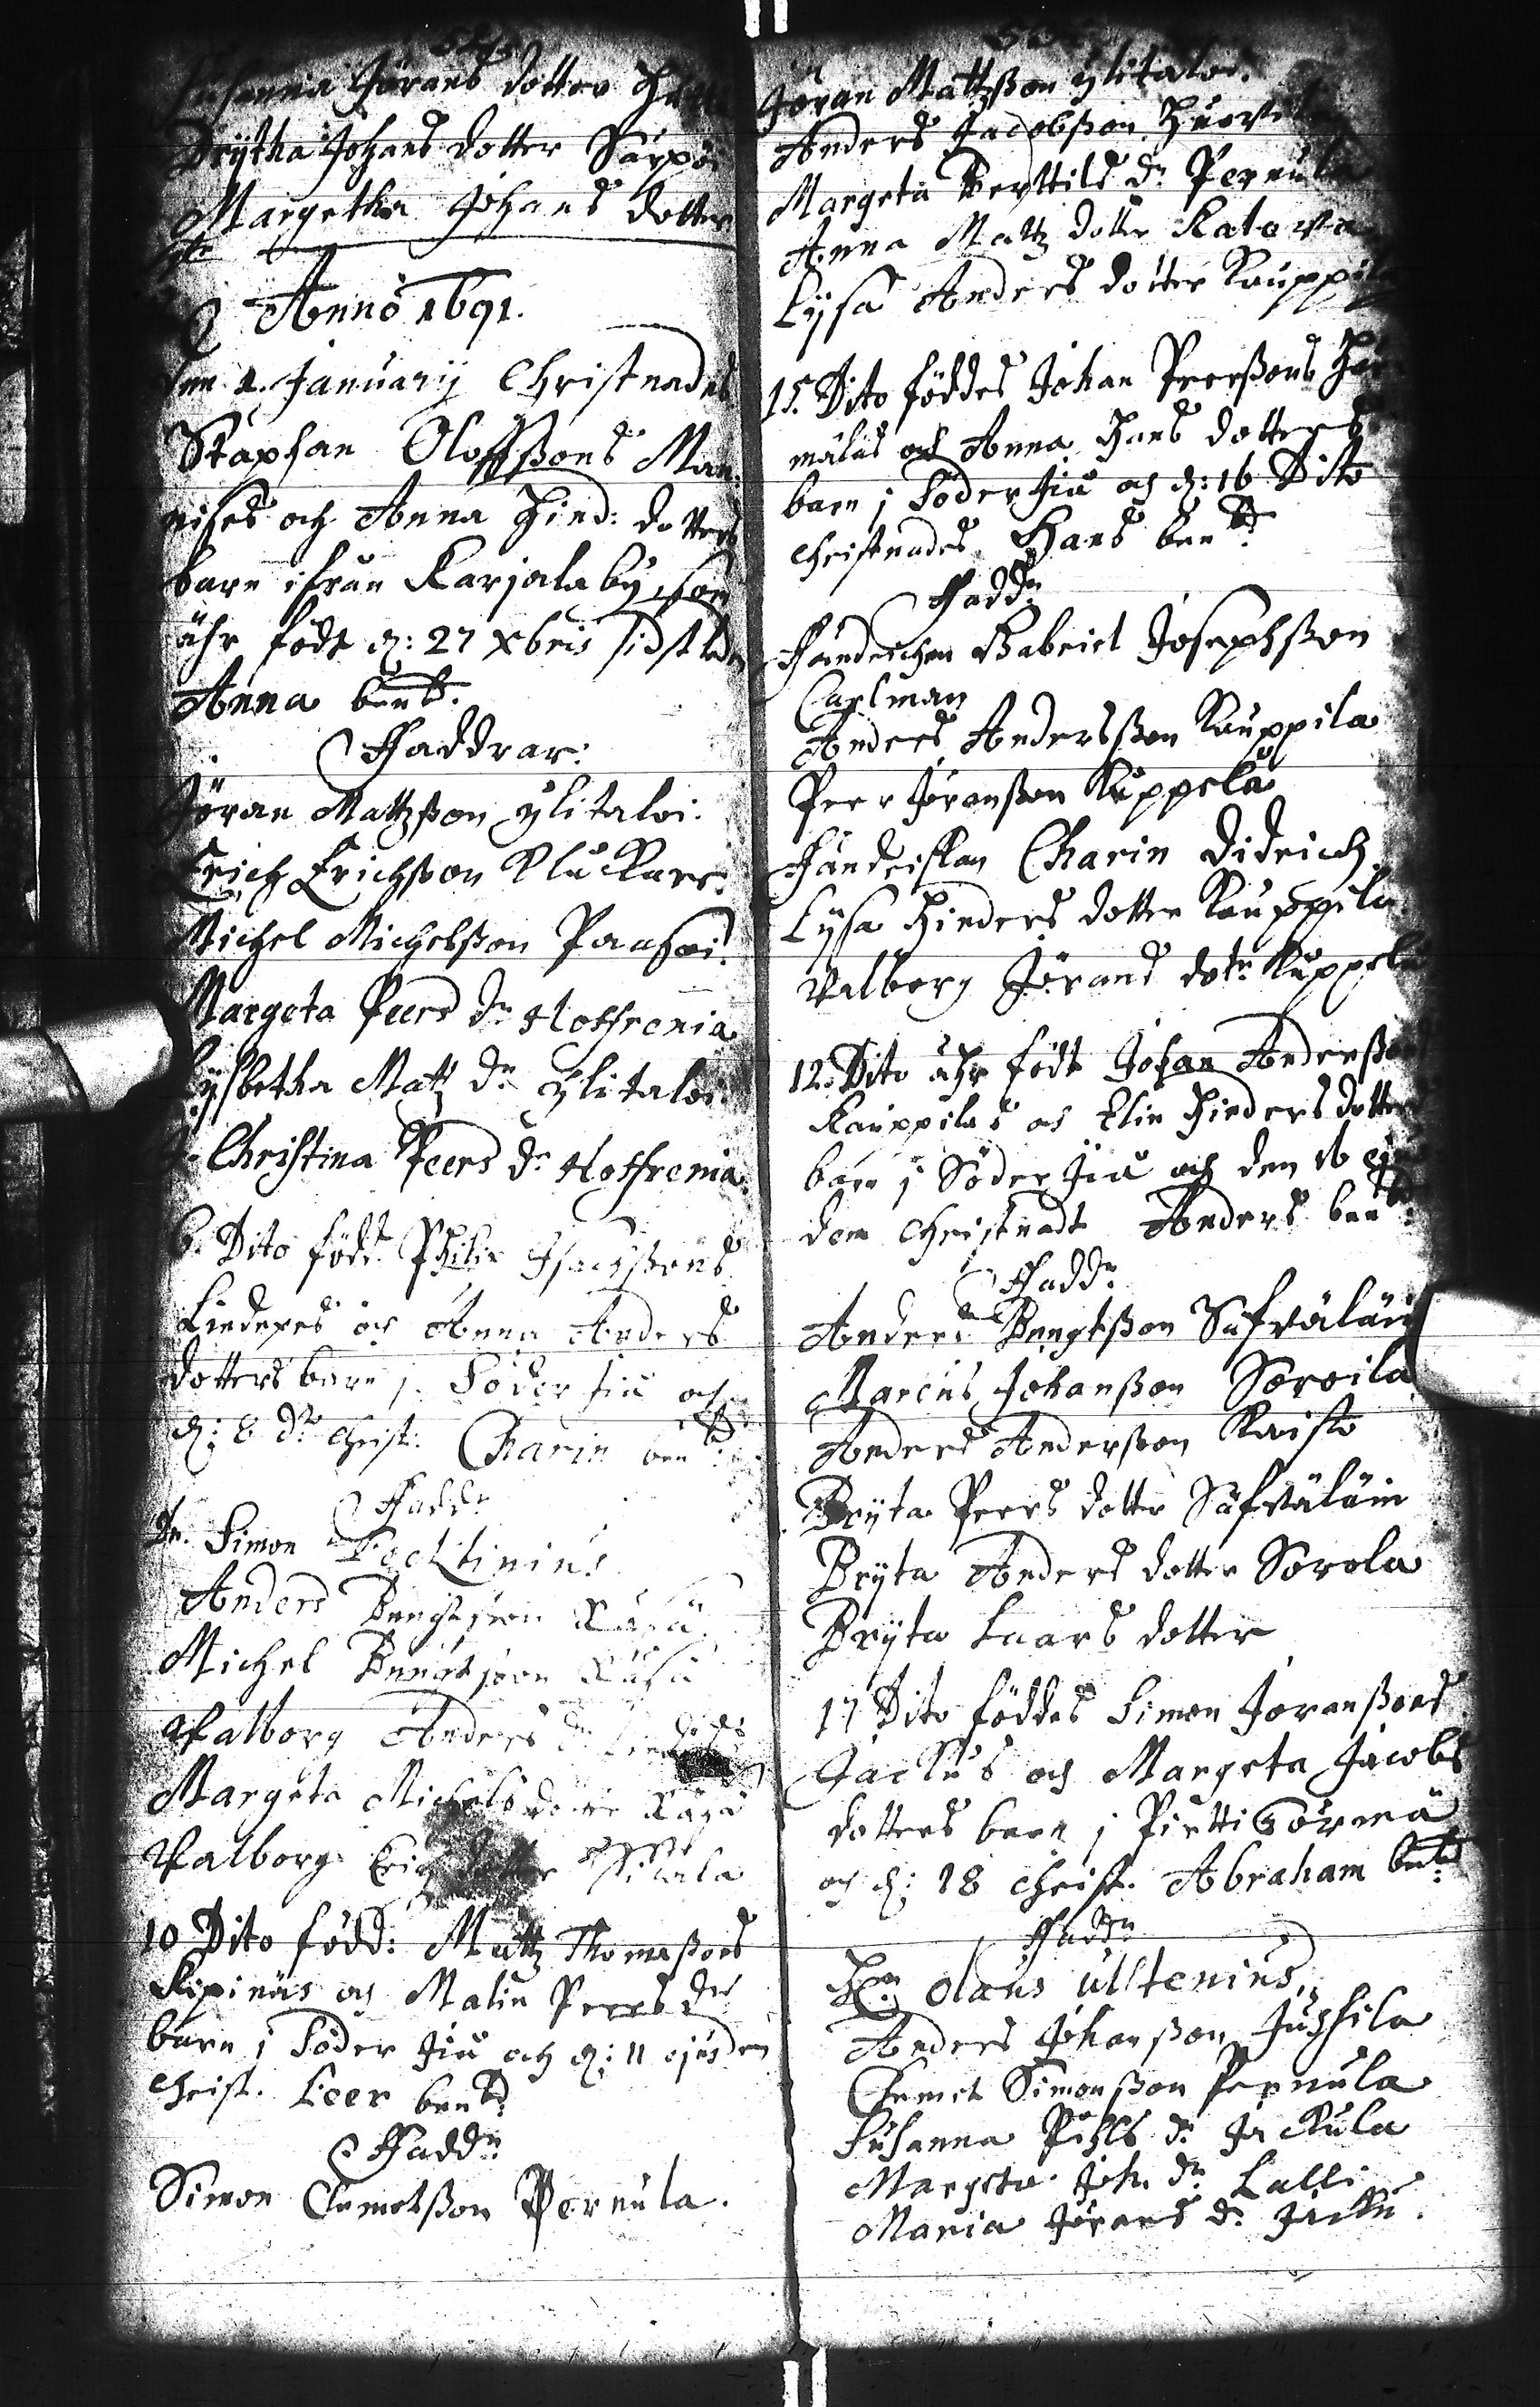 Susanna Jörans dotter
Brytha Johans dotter Särpoi
Margetha Johans dotter
Anno 1691.
den 1. Januarij Christnades
Staphan Oloffßons Man
nises och Anna Hind: dotters
barn ifrån Karjala by, som
ähr födt d: 27 Xbris sidstled
Anna benbd.
Faddrar:
Jöran Mattzßon ylitaloi.
Erich Erichßon Kluckare.
Michel Michelßon Paasoi.
Margeta Peers dr Hoffrenia
Lysbetha Matz dr ylitaloi.
Christina Peers dr Hoffrenia.
6. Dito född Philip Isachßons
Lindepes och Anna Anders
dotters barn j Söder Jiu och
d: 8 do Christ: Charin benbd.
Faddr
Hr. Simon
Anders Bengtßon
Michel Bengtßon
Valborg Anders dr
Margeta Michels dotter
Valborg Erichs dotter
10 Dito född: Mattz Thomaßons
Kipinäs och Malin Peers dr
barn j Söder Jiu och d: 11 ejusdem
Christ. Peer benbd
Faddr
Simon Clemetßon Pernula.
Jöran Mattzßon ylitaloi.
Anders Jacobßon
Margeta Bertills dr Pernula
Anna Matz dotter Katava
Lysa Anders dotter Kauppila
15. Dito föddes Johan Peerßons
mälas och Anna Hans dotters
barn j Söder Jiu och d: 16 Dito
christnades Hans benbd
Faddr
Fändrichen Gabriel Josephßon
Carlman
Anders Anderßon Kauppila
Peer Jöranßon Kuppela
Fändriskan Charin Didrich
Lysa Hinders dotter Kauppila
Valborg Jörans dotr Kuppela
12. Dito ähr födt Johan Anderßon
Kauppilas och Elin Hinders dotter
barn j Söder Jiu och den 16 ejus
dem Christnadt Anders benbd
Faddr
Anders Bengtßon Säfväläin
Marcus Johanßon Soroila
Anders Anderßon Kaisto
Bryta Peers dotter Säfväläin
Bryta Anders dotter Sorola
Bryta Laars dotter
17 Dito föddes Simon Jöranßons
Jackus och Margeta Jacobs
dotters barn j Pirttisörmä
och d: 18 christ. Abraham benbd
Faddr
Hr Olaus Ulstenius
Anders Johanßon Jussila
Clemet Simonßon Pernula
Susanna Påhls dr Jackula
Margeta Joh. dr Lalli
Maria Jörans dr Jacku.